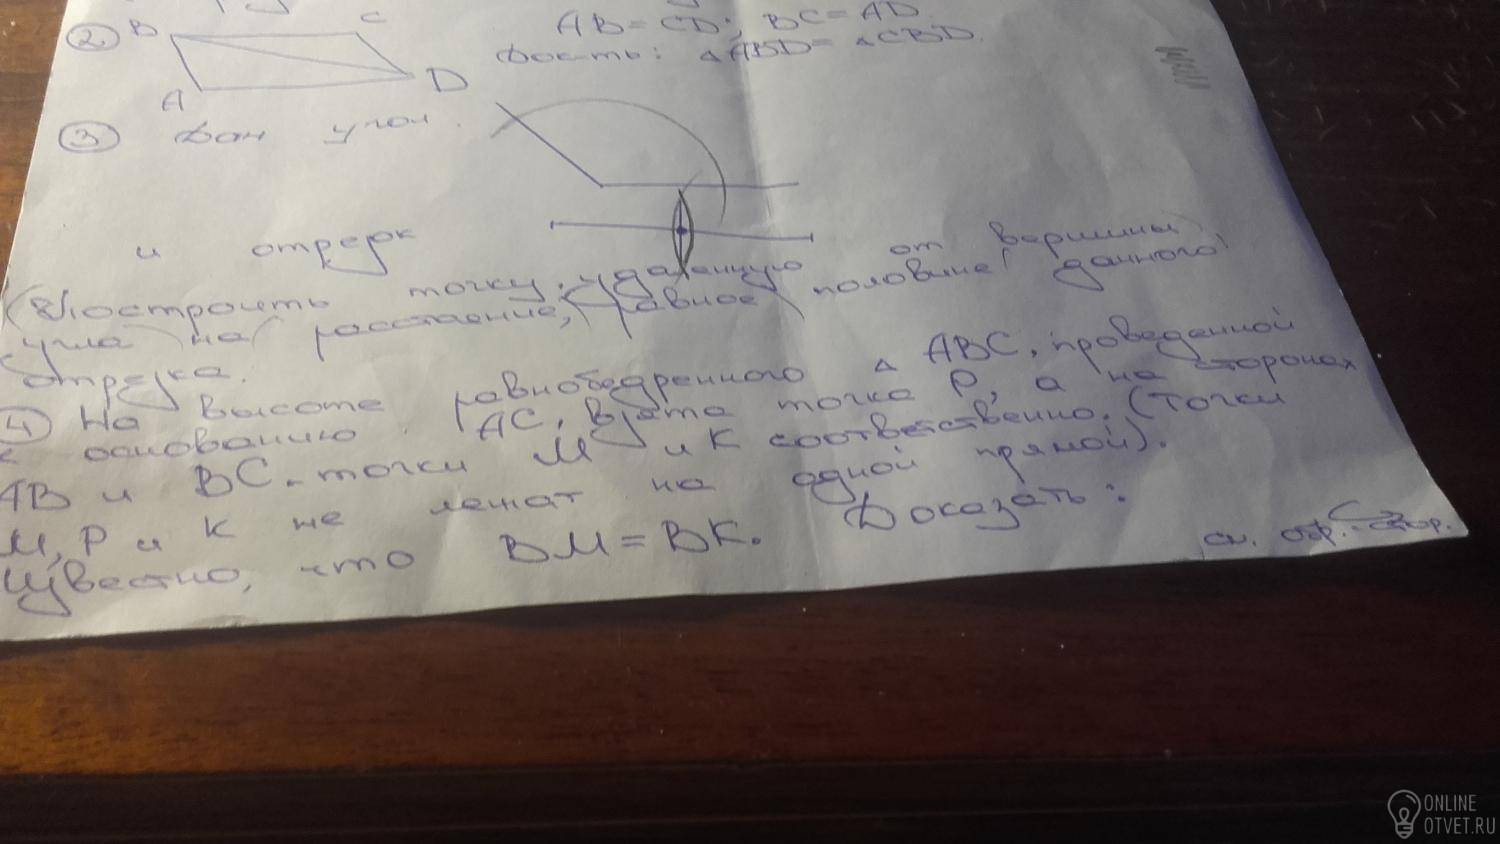 2 B C AB = CD; BC = AD.
A D Док-ть: △ABD = △CBD.
3 Дан угол.
и отрезк
Построить точку, удаленную от вершины
угла на расстояние, равное половине данного
отрезка.
4 На высоте равнобедренного △ ABC, проведенной
к основанию AC, взята точка P, а на сторонах
AB и BC - точки M и K соответственно. (Точки
M, P и K не лежат на одной прямой).
Известно, что BM = BK. Доказать:
см. обр. стор.
ONLINE
OTVET.RU